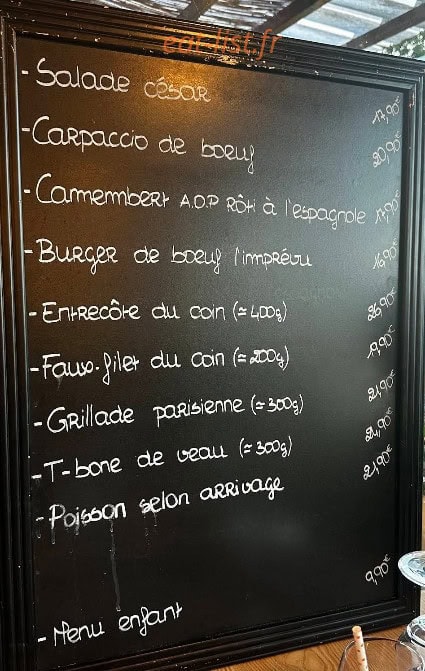 eat-list.fr
- Salade césar 17,90€
- Carpaccio de boeuf 20,90€
- Camembert A.O.P Rôti à l'espagnole 17,90€
- Burger de boeuf l'imprévu 16,90€
- Entrecôte du coin (≈400g) 26,90€
- Faux-filet du coin (≈200g) 17,90€
- Grillade parisienne (≈300g) 21,90€
- T-bone de veau (≈300g) 24,90€
- Poisson selon arrivage 21,90€
- Menu enfant 9,90€